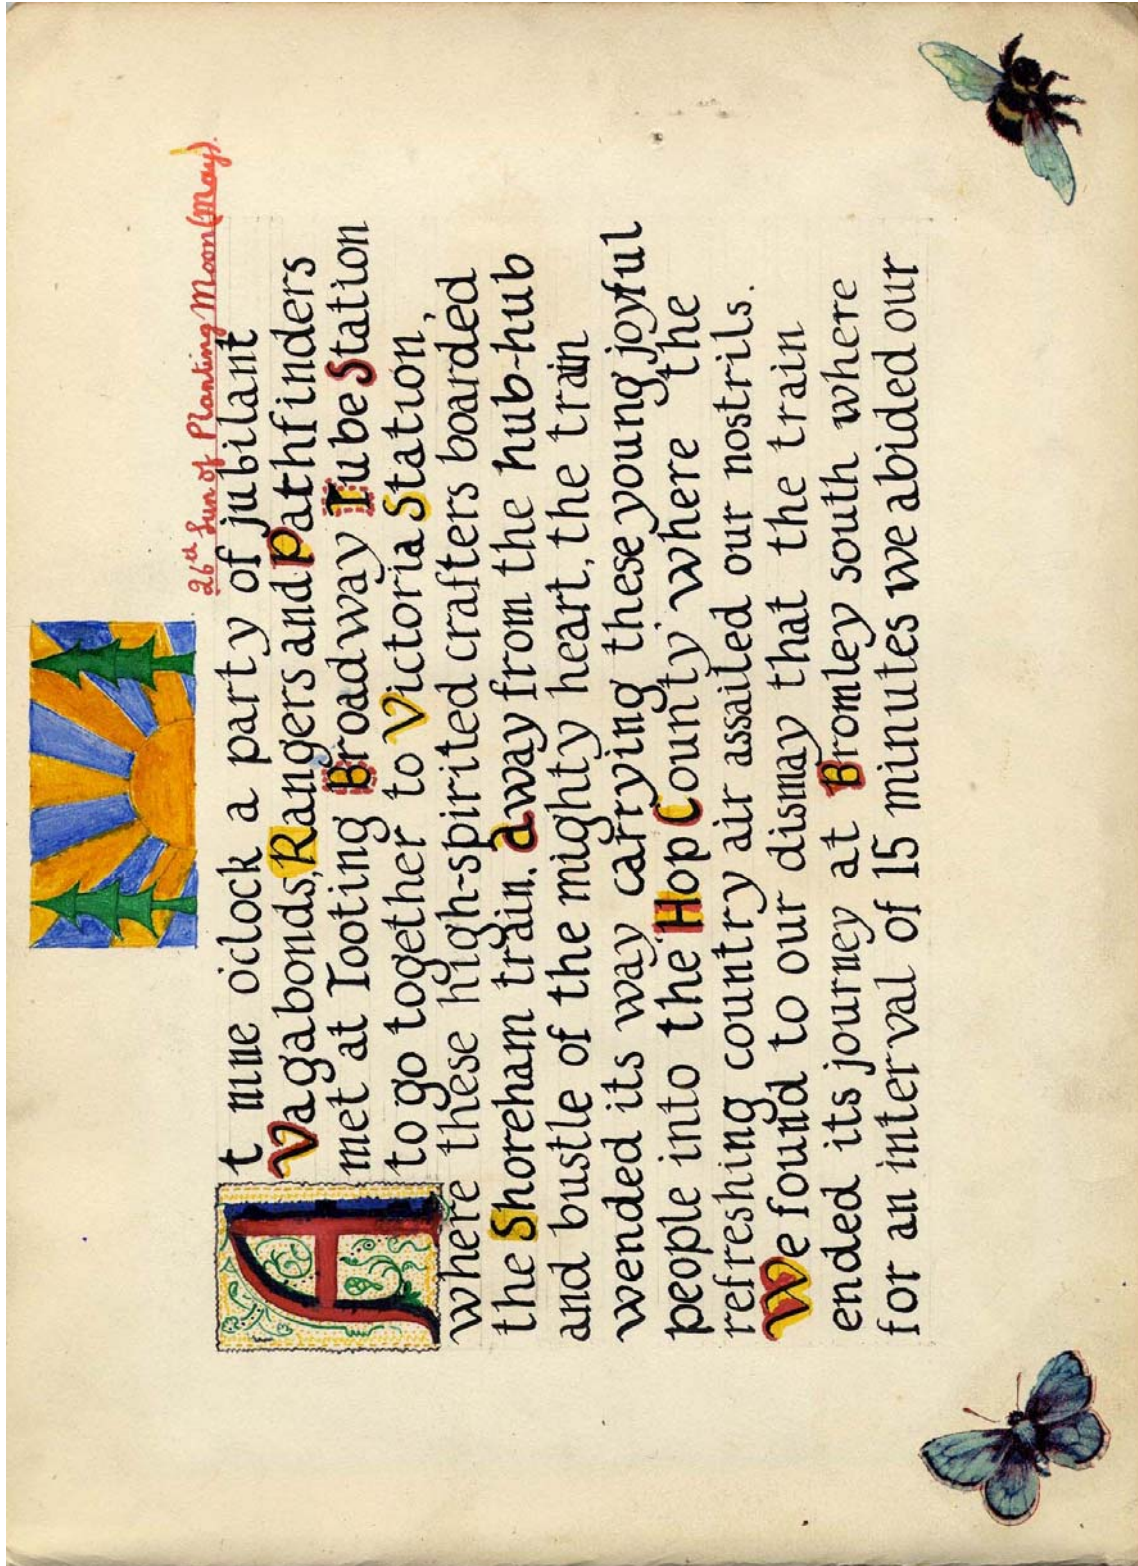 26th Sun of Planting Moon (May).
At nine oclock a party of jubilant
Vagabonds, Rangers and Pathfinders
met at Tooting Broadway Tube Station
to go together to Victoria Station,
where these high-spirited crafters boarded
the Shoreham train. Away from the hub-hub
and bustle of the mighty heart, the train
wended its way carrying these young joyful
people into the 'Hop County' where the
refreshing country air assailed our nostrils.
We found to our dismay that the train
ended its journey at Bromley south where
for an interval of 15 minutes we abided our